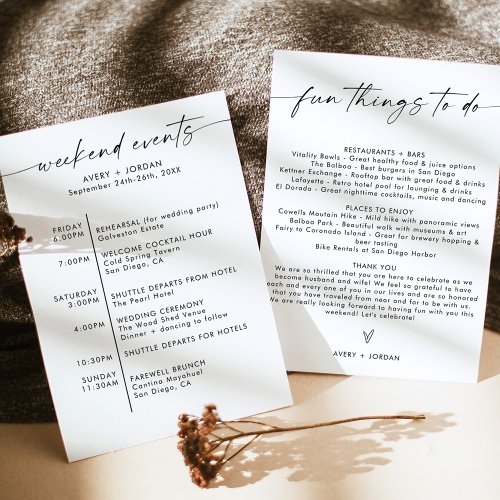 weekend events
AVERY + JORDAN
September 24th-26th, 20XX
FRIDAY
6:00PM
REHEARSAL (for wedding party)
Galveston Estate
7:00PM
WELCOME COCKTAIL HOUR
Cold Spring Tavern
San Diego, CA
SATURDAY
3:00PM
SHUTTLE DEPARTS FROM HOTEL
The Pearl Hotel
4:00PM
WEDDING CEREMONY
The Wood Shed Venue
Dinner + dancing to follow
10:30PM
SHUTTLE DEPARTS FOR HOTELS
SUNDAY
11:30AM
FAREWELL BRUNCH
Cantina Mayahuel
San Diego, CA
fun things to do
RESTAURANTS + BARS
Vitality Bowls - Great healthy food & juice options
The Balboa - Best burgers in San Diego
Kettner Exchange - Rooftop bar with great food & drinks
Lafayette - Retro hotel pool for lounging & drinks
El Dorado - Great nighttime cocktails, music and dancing
PLACES TO ENJOY
Cowells Moutain Hike - Mild hike with panoramic views
Balboa Park - Beautiful walk with museums & art
Fairy to Coronado Island - Great for brewery hopping &
beer tasting
Bike Rentals at San Diego Harbor
THANK YOU
We are so thrilled that you are here to celebrate as we
become husband and wife! We feel so grateful to have
each and every one of you in our lives and are so honored
that you have traveled from near and for to be with us.
We are really looking forward to having fun with you this
weekend! Let's celebrate!
AVERY + JORDAN